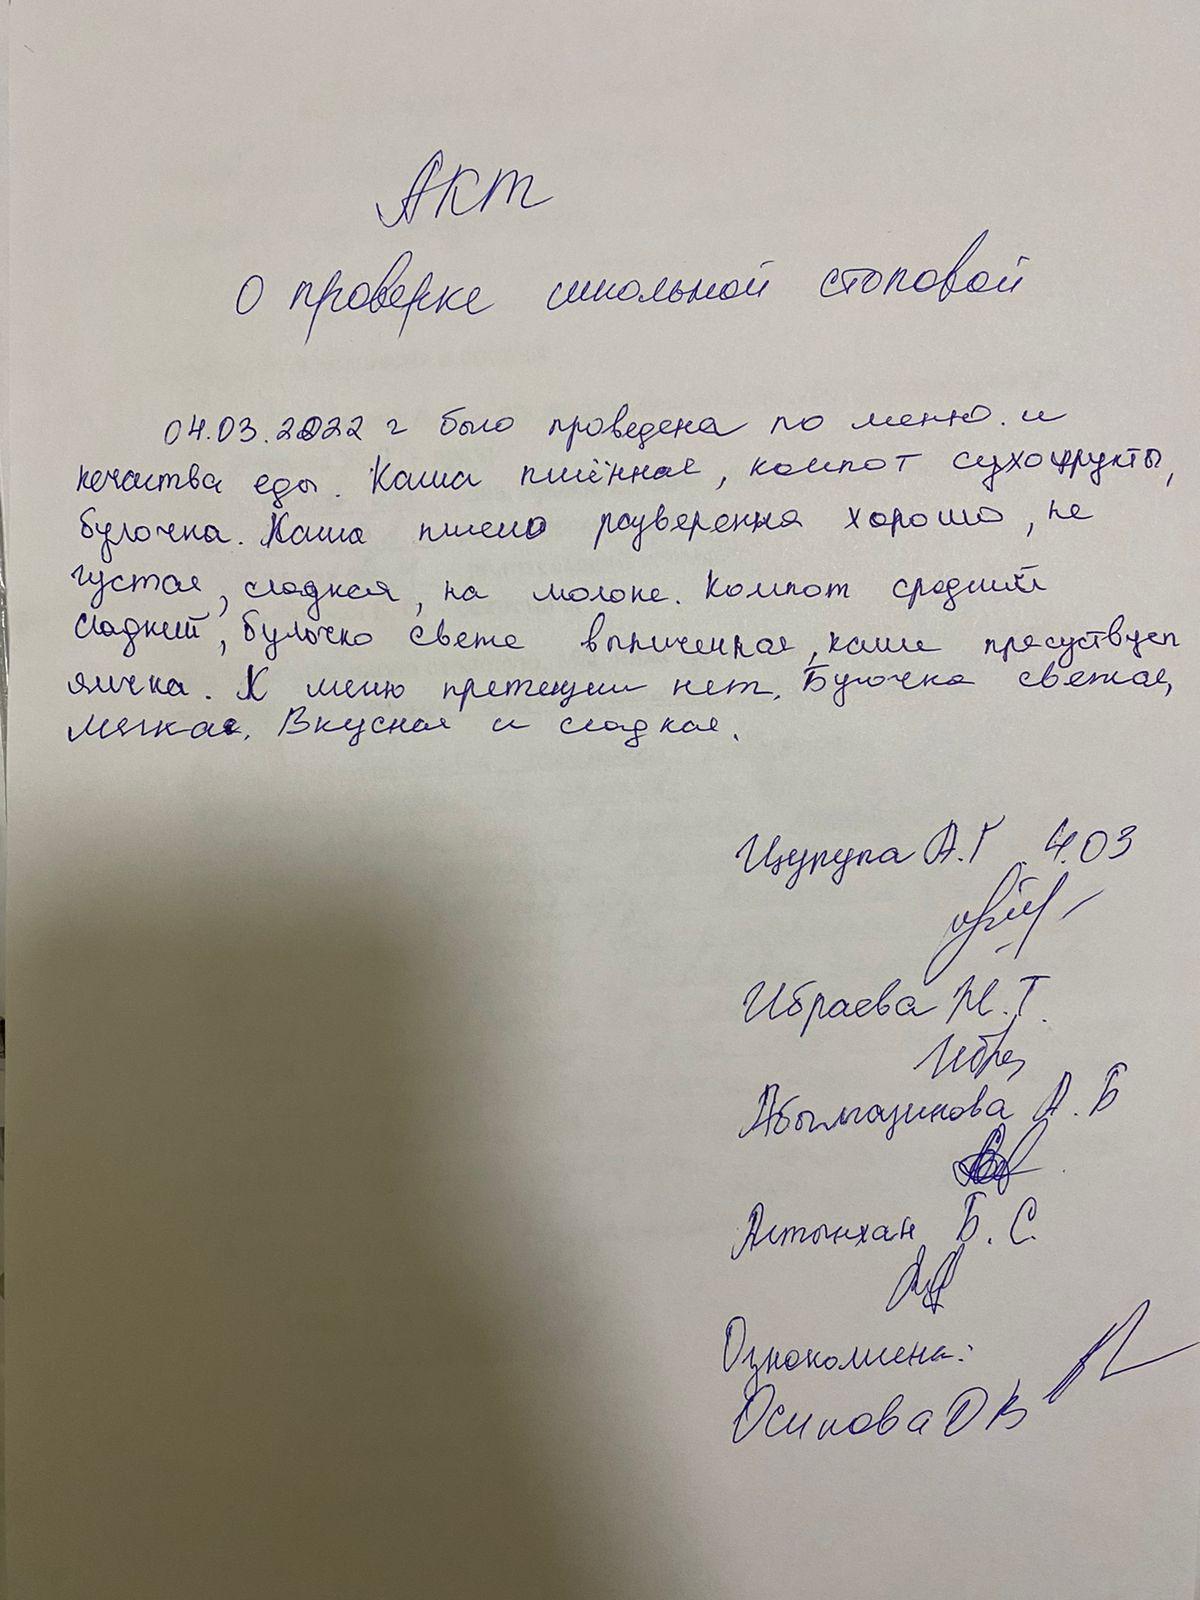 Акт
О проверке школьной столовой
04.03.2022 г было проведена по меню. и
качества еды. Каша пшённая, компот сухофрукты,
булочка. Каша пшено разваренная хорошо, не
густая, сладкая, на молоке. Компот средний
сладкий, булочка свеже выпиченная, каше
ямчка. К меню претензии нет. Булочка свежая,
мягкая. Вкусная и сладкая.
Цурупа А.Г 4.03
Ибраева М.Т.
Ибра
Абылгазинова А.Б
Алтынхан Б.С.
Ознокомлена:
Осипова О В